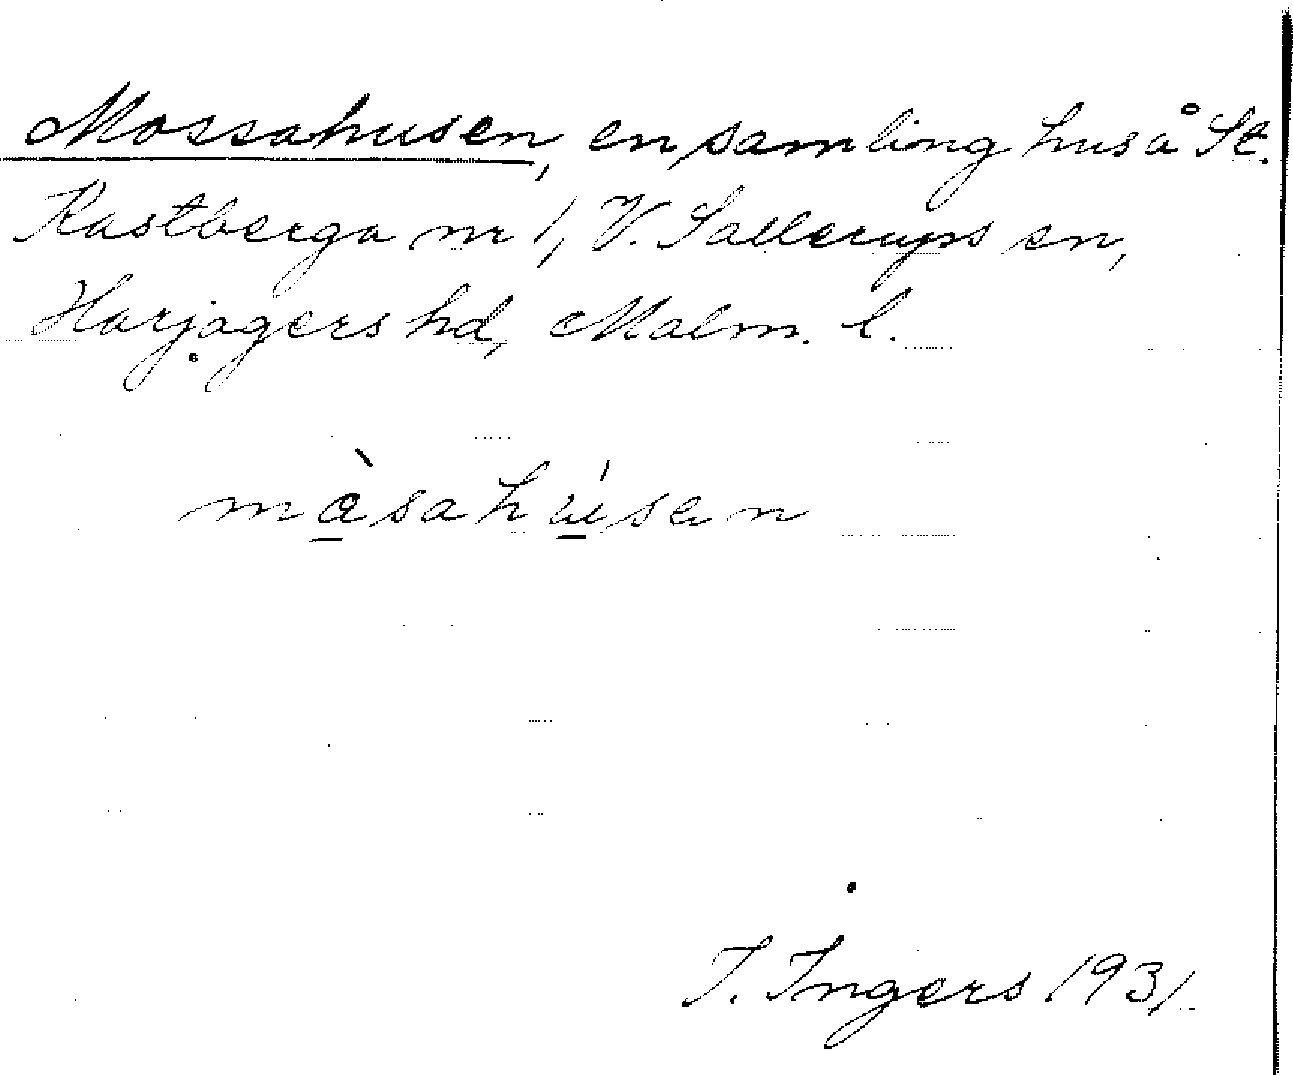 Mossahusen, en samling hus å St.
Rastberga nr 1, V. Sallerups sn,
Harjagers hd, Malm. l.
màsahúsen
I. Ingers 1931.